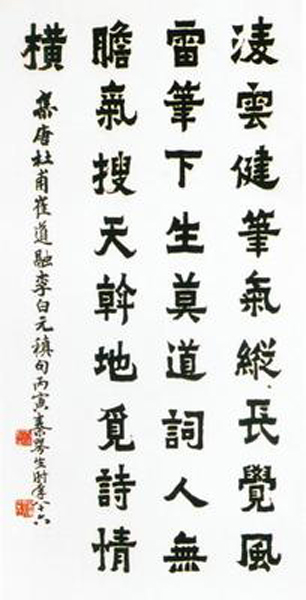 凌雲健筆氣縱長覺風
雷筆下生莫道詞人無
膽氣搜天斡地覓詩情
橫
集唐杜甫崔道融李白元稹句丙寅秦咢生时年八十六